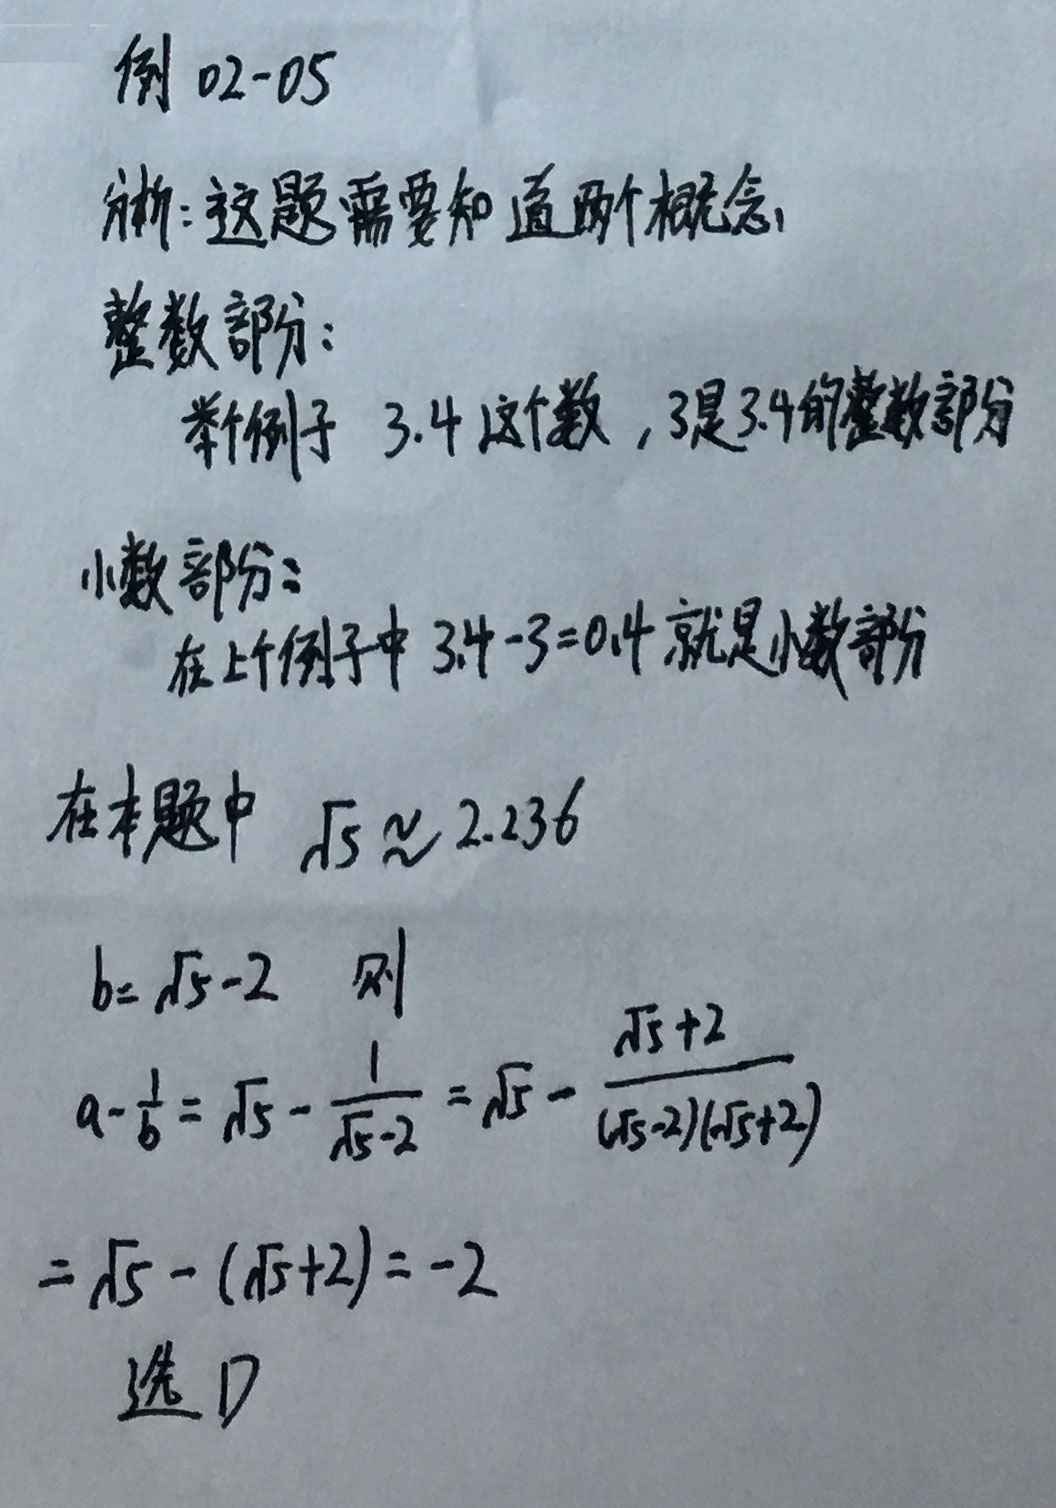 例 02-05
分析：这题需要知道两个概念，
整数部分：
举个例子 3.4 这个数，3是3.4的整数部分
小数部分：
在上个例子中 3.4-3=0.4 就是小数部分
在本题中 √5≈2.236
b=√5-2 则
a-1/b=√5-1/(√5-2)=√5-(√5+2)/((√5-2)(√5+2))
=√5-(√5+2)=-2
选D